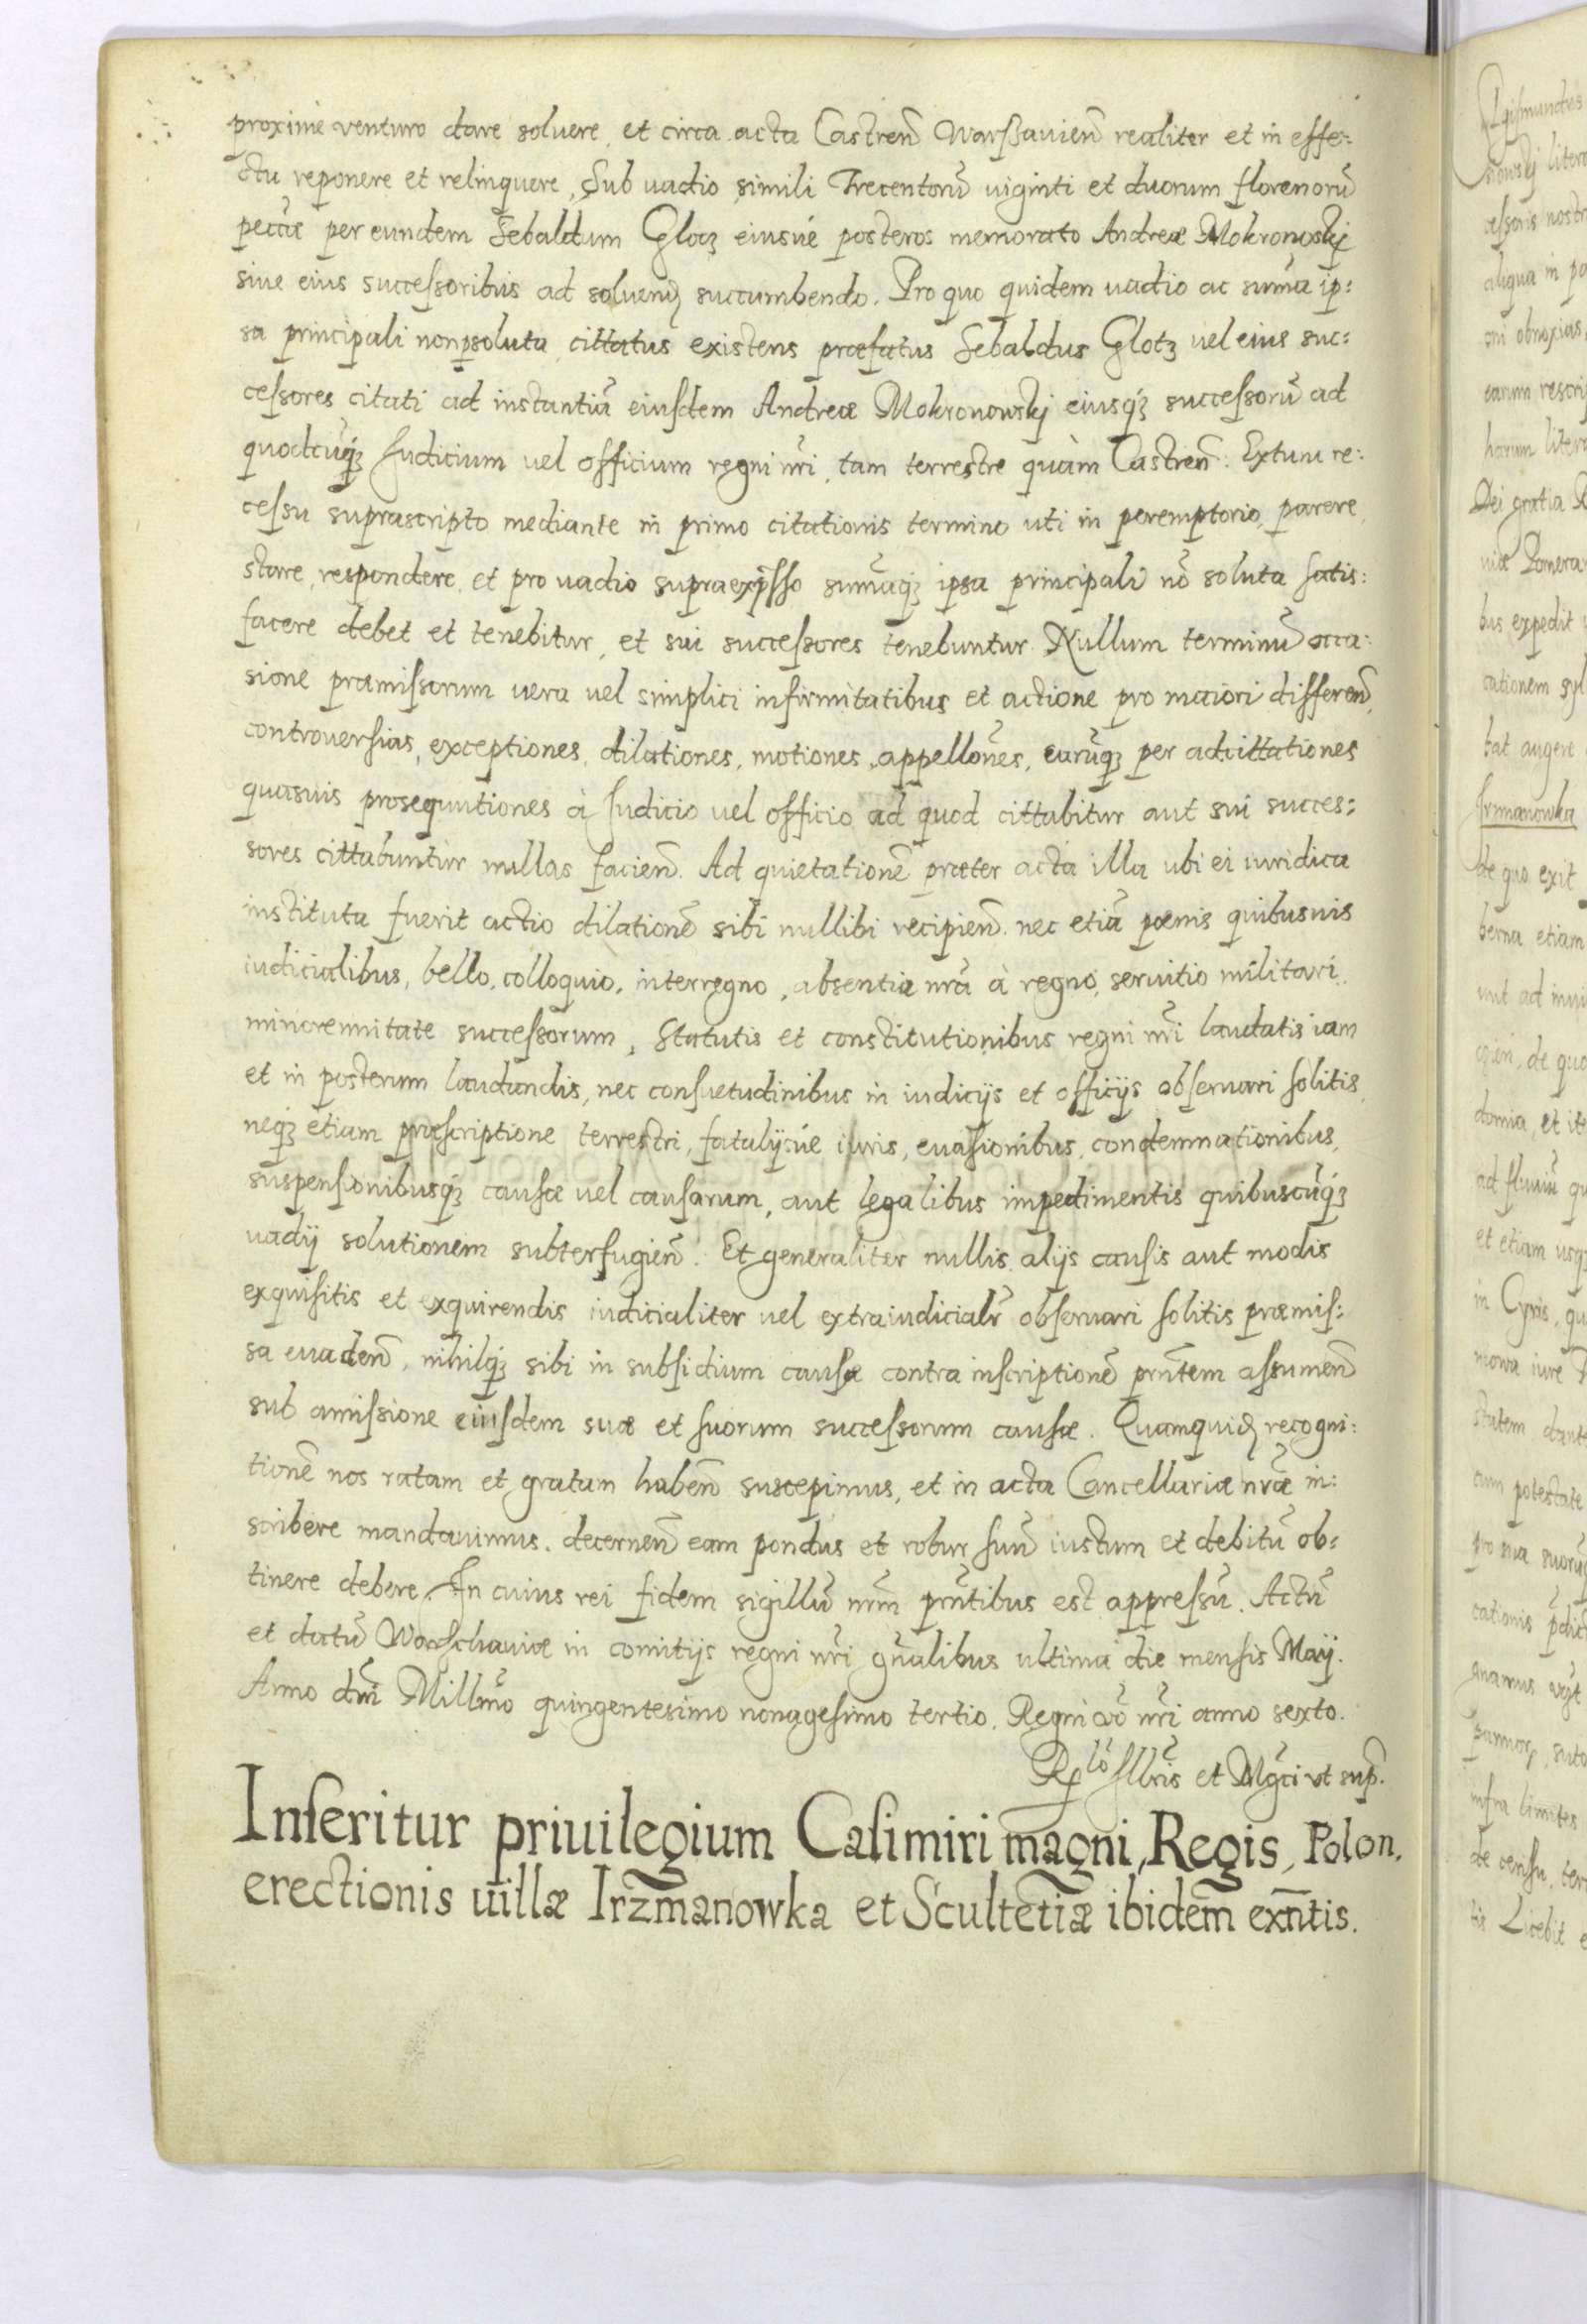 proxime venturo dare soluere, et circa acta Castren̄ Warßavien̄ realiter et in effe:
ctu reponere et relinquere, Sub uadio simili Trecentorū uiginti et duorum florenorū
pecūae per eundem Sebaldum Glocz eiusúe posteros memorato Andreæ Mokronoskj
siue eius successoribus ad soluend succumbendo. Pro quo quidem uadio ac sum̄a ip:
sa principali non psoluta, cittatus existens præfatus Sebaldus Glotz uel eius suc:
cessores citati ad instantiā eiusdem Andreæ Mokronowskj eiusq3 successorū ad
quodcūq3 Judicium uel officium regni nr̄i, tam terrestre quàm Castren̄. Extunc re:
cessu suprascripto mediante in primo citationis termino uti in peremptorio, parere,
stare, respondere, et pro uadio supraexp̄sso sum̄aq3 ipsa principali nō soluta satis:
facere debet et tenebitur, et sui successores tenebuntur. Nullum terminū occa:
sione præmissorum uera uel simplici infirmitatibus et actione pro maiori differen̄,
controuersias, exceptiones, dilationes, motiones, appellōnes, earūq3 per adcittationes
quasuis prosequutiones à Judicio uel officio ad quod cittabitur aut sui succes:
sores cittabuntur nullas facien̄. Ad quietationē præter acta illa ubi ei iuridica
instituta fuerit actio dilationē sibi nullibi recipien̄. nec etiā pœnis quibusuis
iudicialibus, bello, colloquio, interregno, absentia nr̄a à regno, seruitio militari,
minorennitate successorum, Statutis et constitutionibus regni nr̄i laudatis iam
et in posterum laudandis, nec consuetudinibus in iudicijs et officijs obseruari solitis,
neq3 etiam præscriptione terrestri, fatalijsúe iuris, euasionibus, condemnationibus,
suspensionibusq3 causæ uel causarum, aut legalibus impedimentis quibuscūq3
uadij solutionem subterfugien̄. Et generaliter nullis alijs causis aut modis
exquisitis et exquirendis iudicialiter uel extraiudicialr̄ obseruari solitis præmis:
sa euaden̄, nihilq3 sibi in subsidium causæ contra inscriptionē prn̄tem assumen̄
sub amissione eiusdem suæ et suorum successorum causæ. Quamquid recogni:
tionē nos ratam et gratam haben̄ suscepimus, et in acta Cancellariæ nr̄æ in:
scribere mandauimus. decernen̄ eam pondus et robur suū iustum et debitū ob:
tinere debere. In cuius rei fidem sigillū nrm̄ prn̄tibus est appressū. Actū
et datū Warschauiæ in comitijs regni nr̄i gn̄alibus ultima die mensis Maij.
Anno dn̄i Millmō quingentesimo nonagesimo tertio. Regni vō nr̄i anno sexto.
Illris̄ et Mḡci ut sup̄.
Inseritur priuilegium Casimiri magni, Regis, Polon.
erectionis uillæ Irzmanowka et Scultetiæ ibidem exn̄tis.